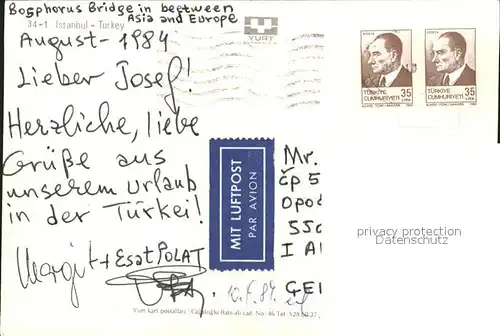 Bosphorus Bridge in beetween
Asia and Europe
34-1 Istanbul - Turkey
YURT
August - 1984
Lieber Josef!
Herzliche, liebe
Grüße aus
unserem Urlaub
in der Türkei!
Margit + Esat POLAT
10.8.84.
Yurt kart postalları: Cağaloğlu Babıali cad. No: 46 Tel: 528 00 37
MIT LUFTPOST
PAR AVION
POSTA
TÜRKİYE
CUMHURİYETİ
35
LİRA
POSTA
TÜRKİYE
CUMHURİYETİ
35
LİRA
Mr.
čp 5
Opoč
55c
I A
GE
privacy protection
Datenschutz